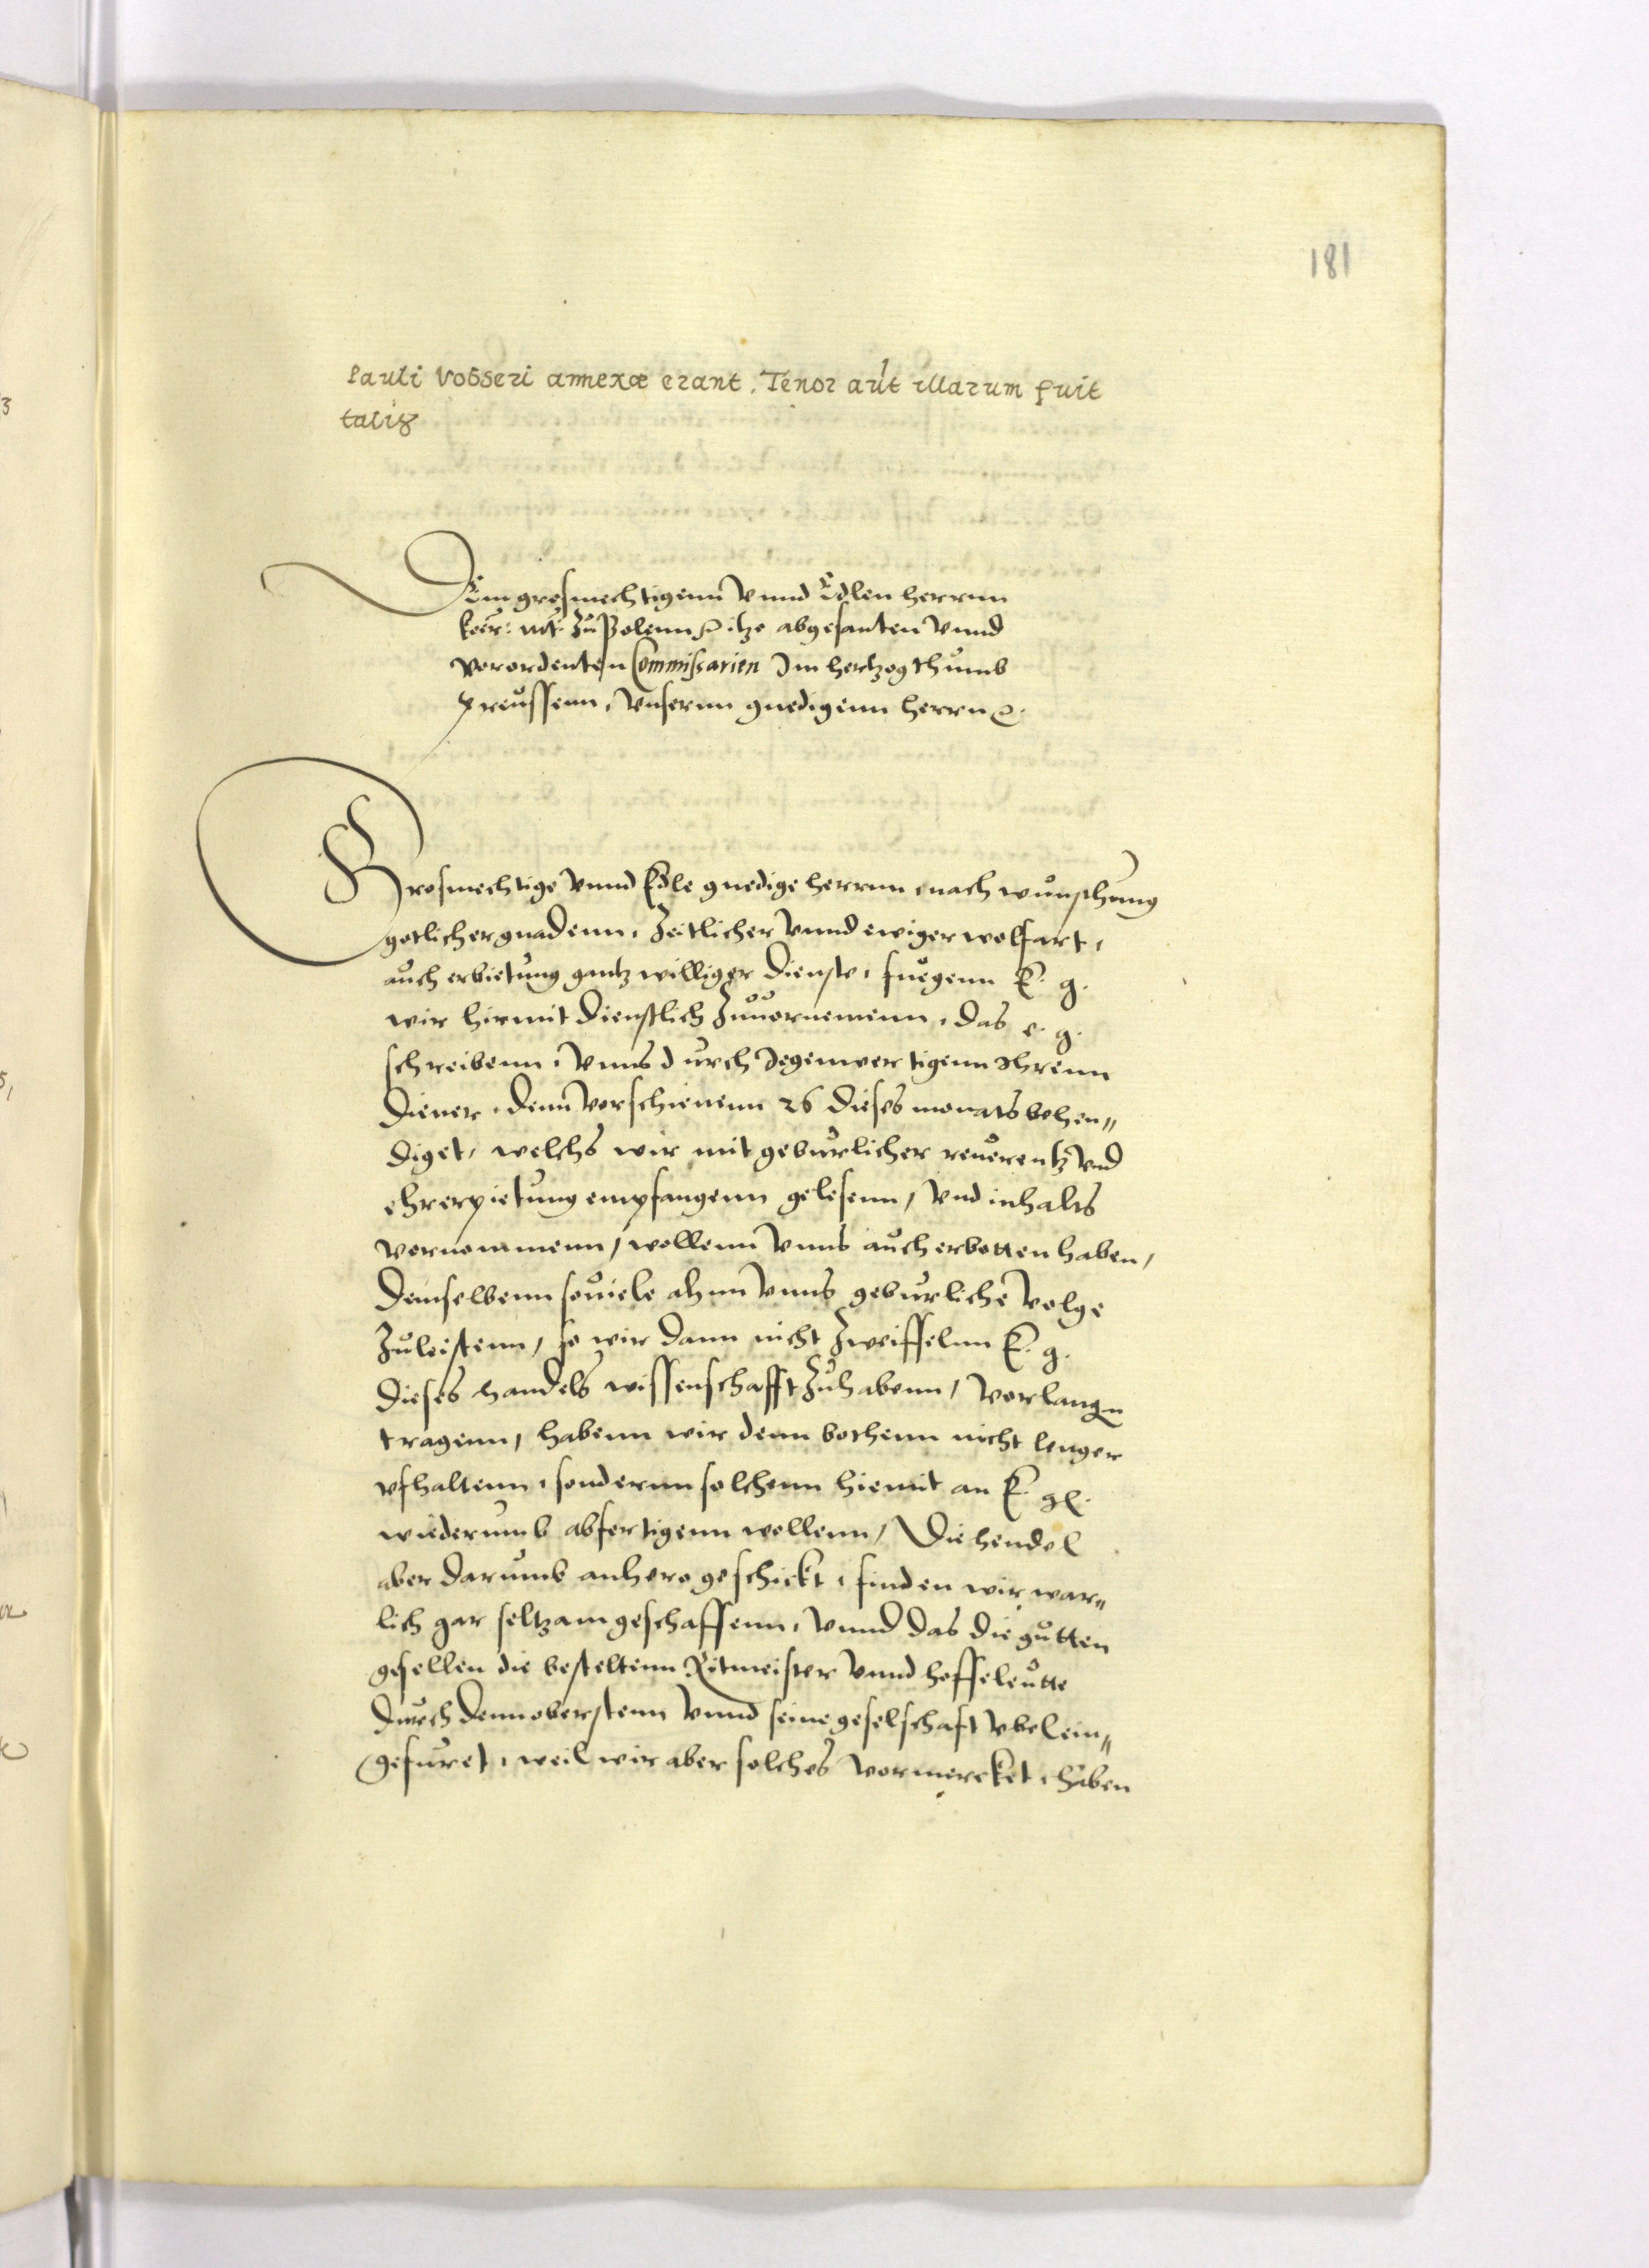 181
Pauli Vobseri annexæ erant. Tenor aut illarum fuit
talis
Dem grosmechtigenn vnnd Edlen herrnn
koer: mt: zu Polenn itzo abgesanten vnnd
verordenten Commissarien Im hertzogthumb
Preussenn, vnsernn gnedigenn herrn
Grosmechtige vnnd Edle gnedige herrnn, nach wunschung
gotlicher gnadenn, Zeitlicher vnnd ewiger wolfart,
auch erbietung gantz williger dienste, fuegenn E. g.
wir hirmit dienstlich Zuuornemenn, das e. g.
schreibenn, vnns durch Jegenwertigenn Ihrenn
diener, denn verschienenn 26 dieses monats behen„
diget, welchs wir mit geburlicher reuerentz vnd
ehrerpietung empfangenn gelesenn, vnd inhalts
vornommenn, wollenn vnns auch erbotten haben,
demselbenn souiele ahnn vnns geburliche volge
Zuleistenn, so wir dann nicht Zweiffelnn E. g.
dieses handels wissenschafft Zuhabenn, vorlangn
tragenn, habenn wir denn bothenn nicht lenger
vfhaltenn, sondernn solchenn hiemit an E. gl.
wiederumb abfertigenn wollenn, Die hendel
aber darumb anhero geschickt, finden wir war„
lich gar seltzam geschaffenn, vnnd das die gutten
gesellen die bestelten Ritmeister vnnd hoffeleutte
durch denn oberstenn vnnd seine geselschaft vbel ein„
gefuret, weil wir aber solches vormercket, haben